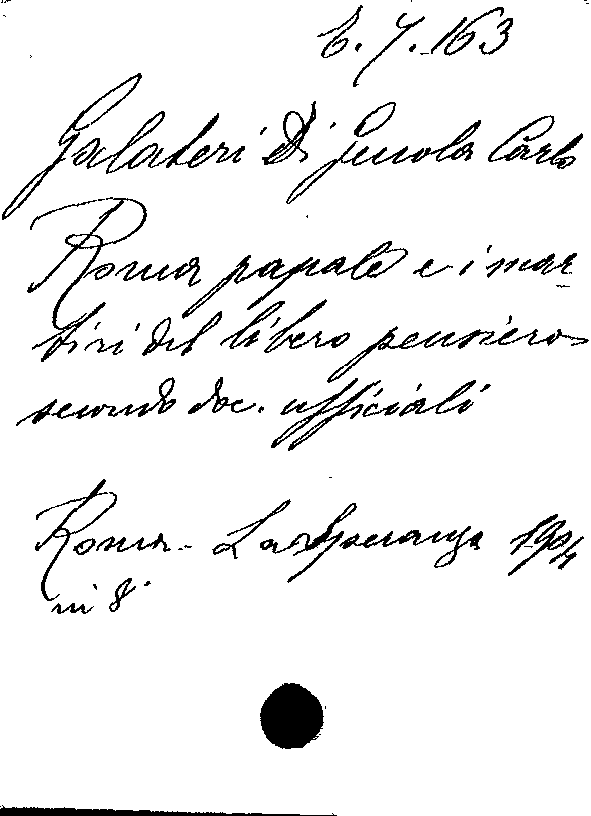 E. 7. 163
Galateri Di Genola Carlo
Roma papale e i mar-
tiri del libero pensiero
secondo doc. ufficiali
Roma - La Speranza 1904
in 8°